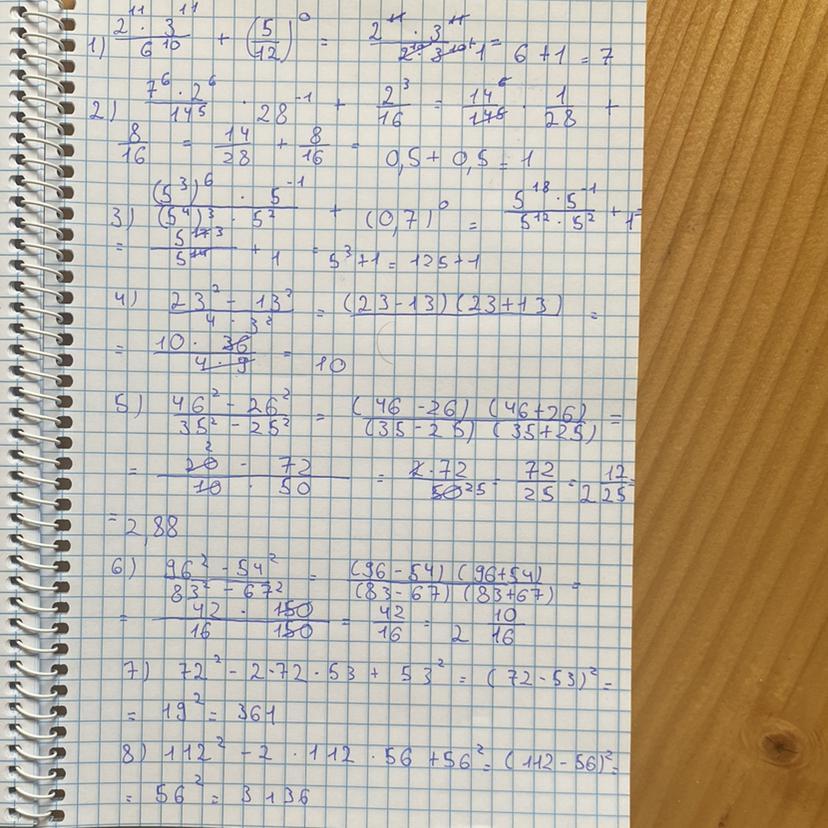 1) (2^11 · 3^11)/(6^10) + (5/12)^0 = (2^11 · 3^11)/(2^10 · 3^10) + 1 = 6 + 1 = 7
2) (7^6 · 2^6)/(14^5) · 28^-1 + 2^3/16 = 14^6/14^5 · 1/28 +
8/16 = 14/28 + 8/16 = 0,5 + 0,5 = 1
3) ((5^3)^6 · 5^-1)/((5^4)^3 · 5^2) + (0,7)^0 = (5^18 · 5^-1)/(5^12 · 5^2) + 1 =
= 5^17/5^14 + 1 = 5^3 + 1 = 125 + 1
4) (23^2 - 13^2)/(4 · 3^2) = (23 - 13)(23 + 13) =
= (10 · 36)/(4 · 9) = 10
5) (46^2 - 26^2)/(35^2 - 25^2) = (46 - 26)(46 + 26)/(35 - 25)(35 + 25) =
= (20 · 72)/(10 · 50) = (2 · 72)/50 = 72/25 = 2 12/25 =
= 2,88
6) (96^2 - 54^2)/(83^2 - 67^2) = (96 - 54)(96 + 54)/(83 - 67)(83 + 67) =
= (42 · 150)/(16 · 150) = 42/16 = 2 10/16
7) 72^2 - 2 · 72 · 53 + 53^2 = (72 - 53)^2 =
= 19^2 = 361
8) 112^2 - 2 · 112 · 56 + 56^2 = (112 - 56)^2 =
= 56^2 = 3136